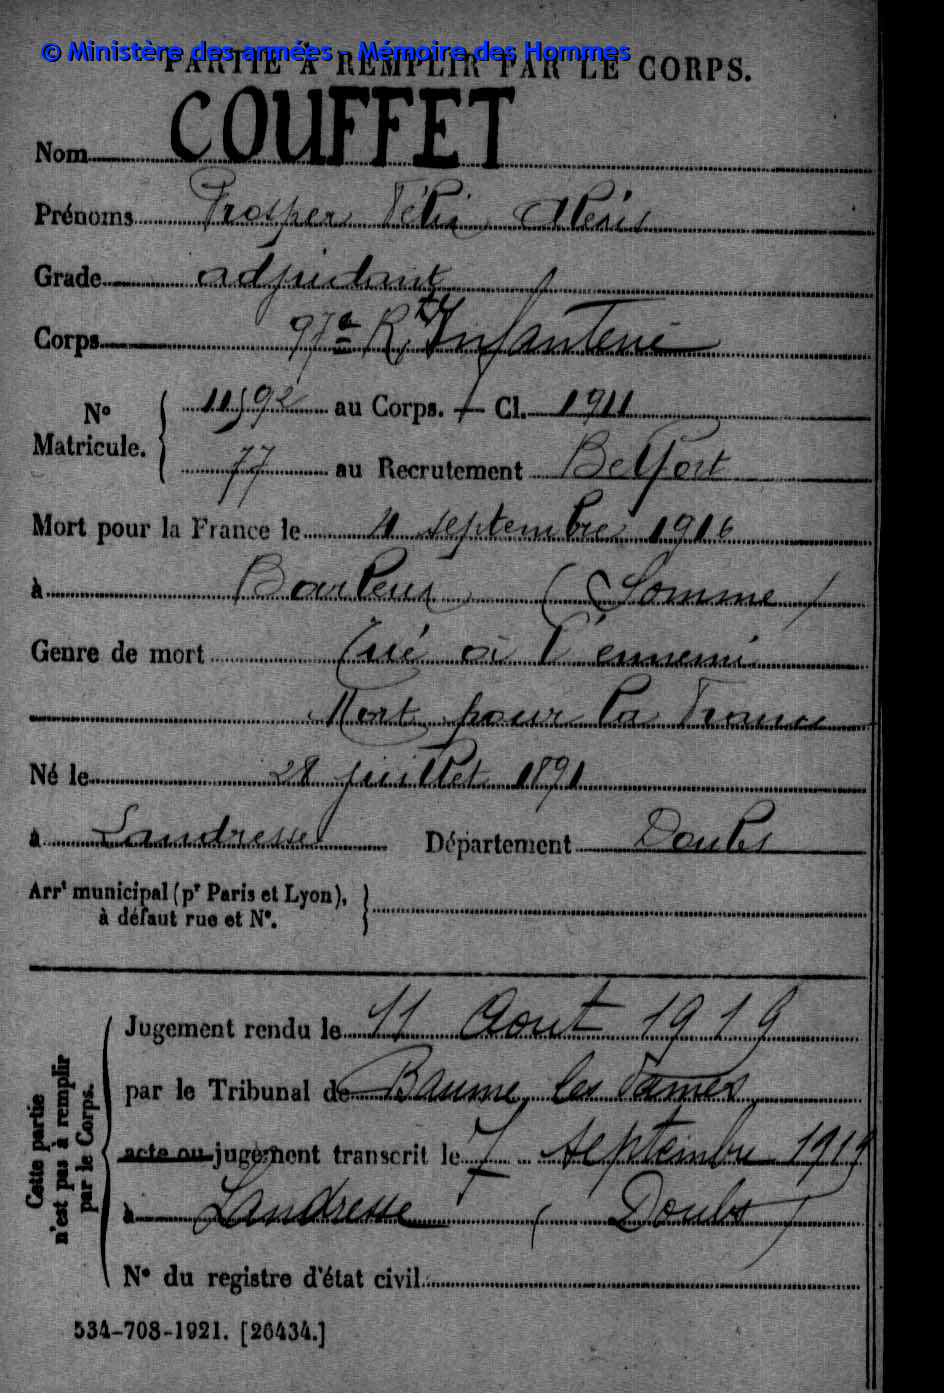 © Ministère des armées - Mémoire des Hommes
PARTIE À REMPLIR PAR LE CORPS.
Nom COUFFET
Prénoms Prosper Félix Alexis
Grade adjudant
Corps 97e Rt d'Infanterie
No Matricule. 11592 au Corps. — Cl. 1911
77 au Recrutement Belfort
Mort pour la France le 4 septembre 1916
à Barleux (Somme)
Genre de mort Tué à l'ennemi
Mort pour la France
Né le 28 juillet 1891
à Landresse Département Doubs
Arrt municipal (pr Paris et Lyon),
à défaut rue et No.
Cette partie n'est pas à remplir par le Corps.
Jugement rendu le 11 Aout 1919
par le Tribunal de Baume les Dames
acte ou jugement transcrit le 7 septembre 1919
à Landresse (Doubs)
No du registre d'état civil
534-708-1921. [26434.]